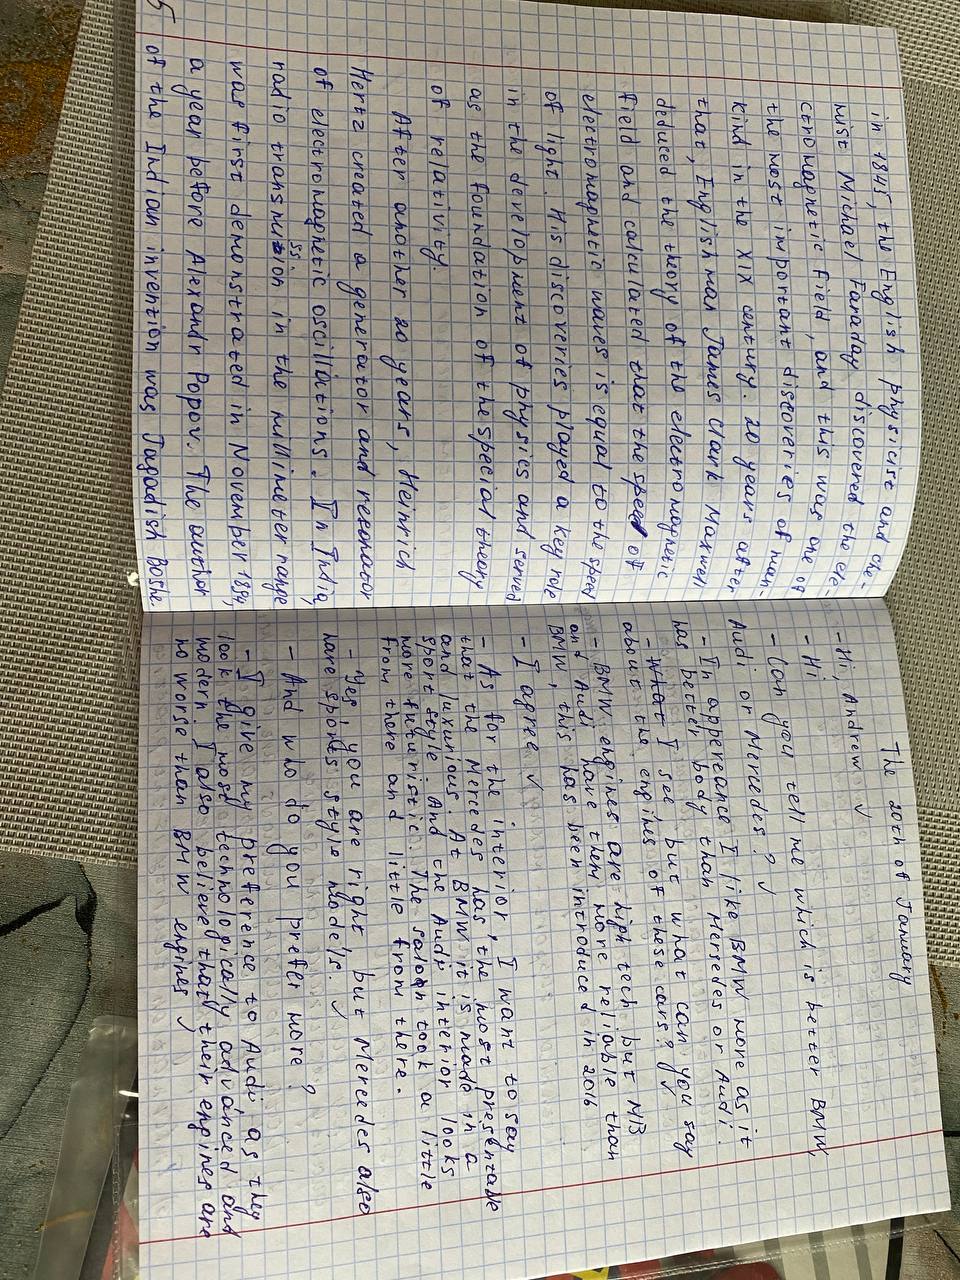 in 1845, the English physicist and che-
mist Michael Faraday discovered the ele-
ctromagnetic field, and this was one of
the most important discoveries of man-
kind in the XIX century. 20 years after
that, Englishman James Clark Maxwell
deduced the theory of the electromagnetic
field and calculated that the speed of
electromagnetic waves is equal to the speed
of light. His discoveries played a key role
in the development of physics and served
as the foundation of the special theory
of relativity.
After another 20 years, Heinrich
Hertz created a generator and resonator
of electromagnetic oscillations. In India,
radio transmission in the millimeter range
was first demonstrated in November 1894,
a year before Alexandr Popov. The author
5 of the Indian invention was Jagadish Boshe.
The 20th of January
- Hi, Andrew ✓
- Hi
- Can you tell me which is better BMW,
Audi or Mercedes? ✓
- In appereance I like BMW more as it
has better body than Mersedes or Audi.
- What I see, but what can you say
about the engines of these cars? ✓
- BMW engines are high tech, but MB
and Audi have them more reliable than
BMW, this has been introduced in 2016
- I agree ✓
- As for the interior, I want to say
that the Mercedes has the most presentable
and luxurious. At BMW it is made in a
sport style. And the Audi interior looks
more futuristic. The salon took a little
from there and little from there.
- Yes, you are right, but Mercedes also
have sports style models. ✓
- And who do you prefer more?
- I give my preference to Audi, as they
look the most technologically advanced and
modern. I also believe that their engines are
no worse than BMW engines ✓